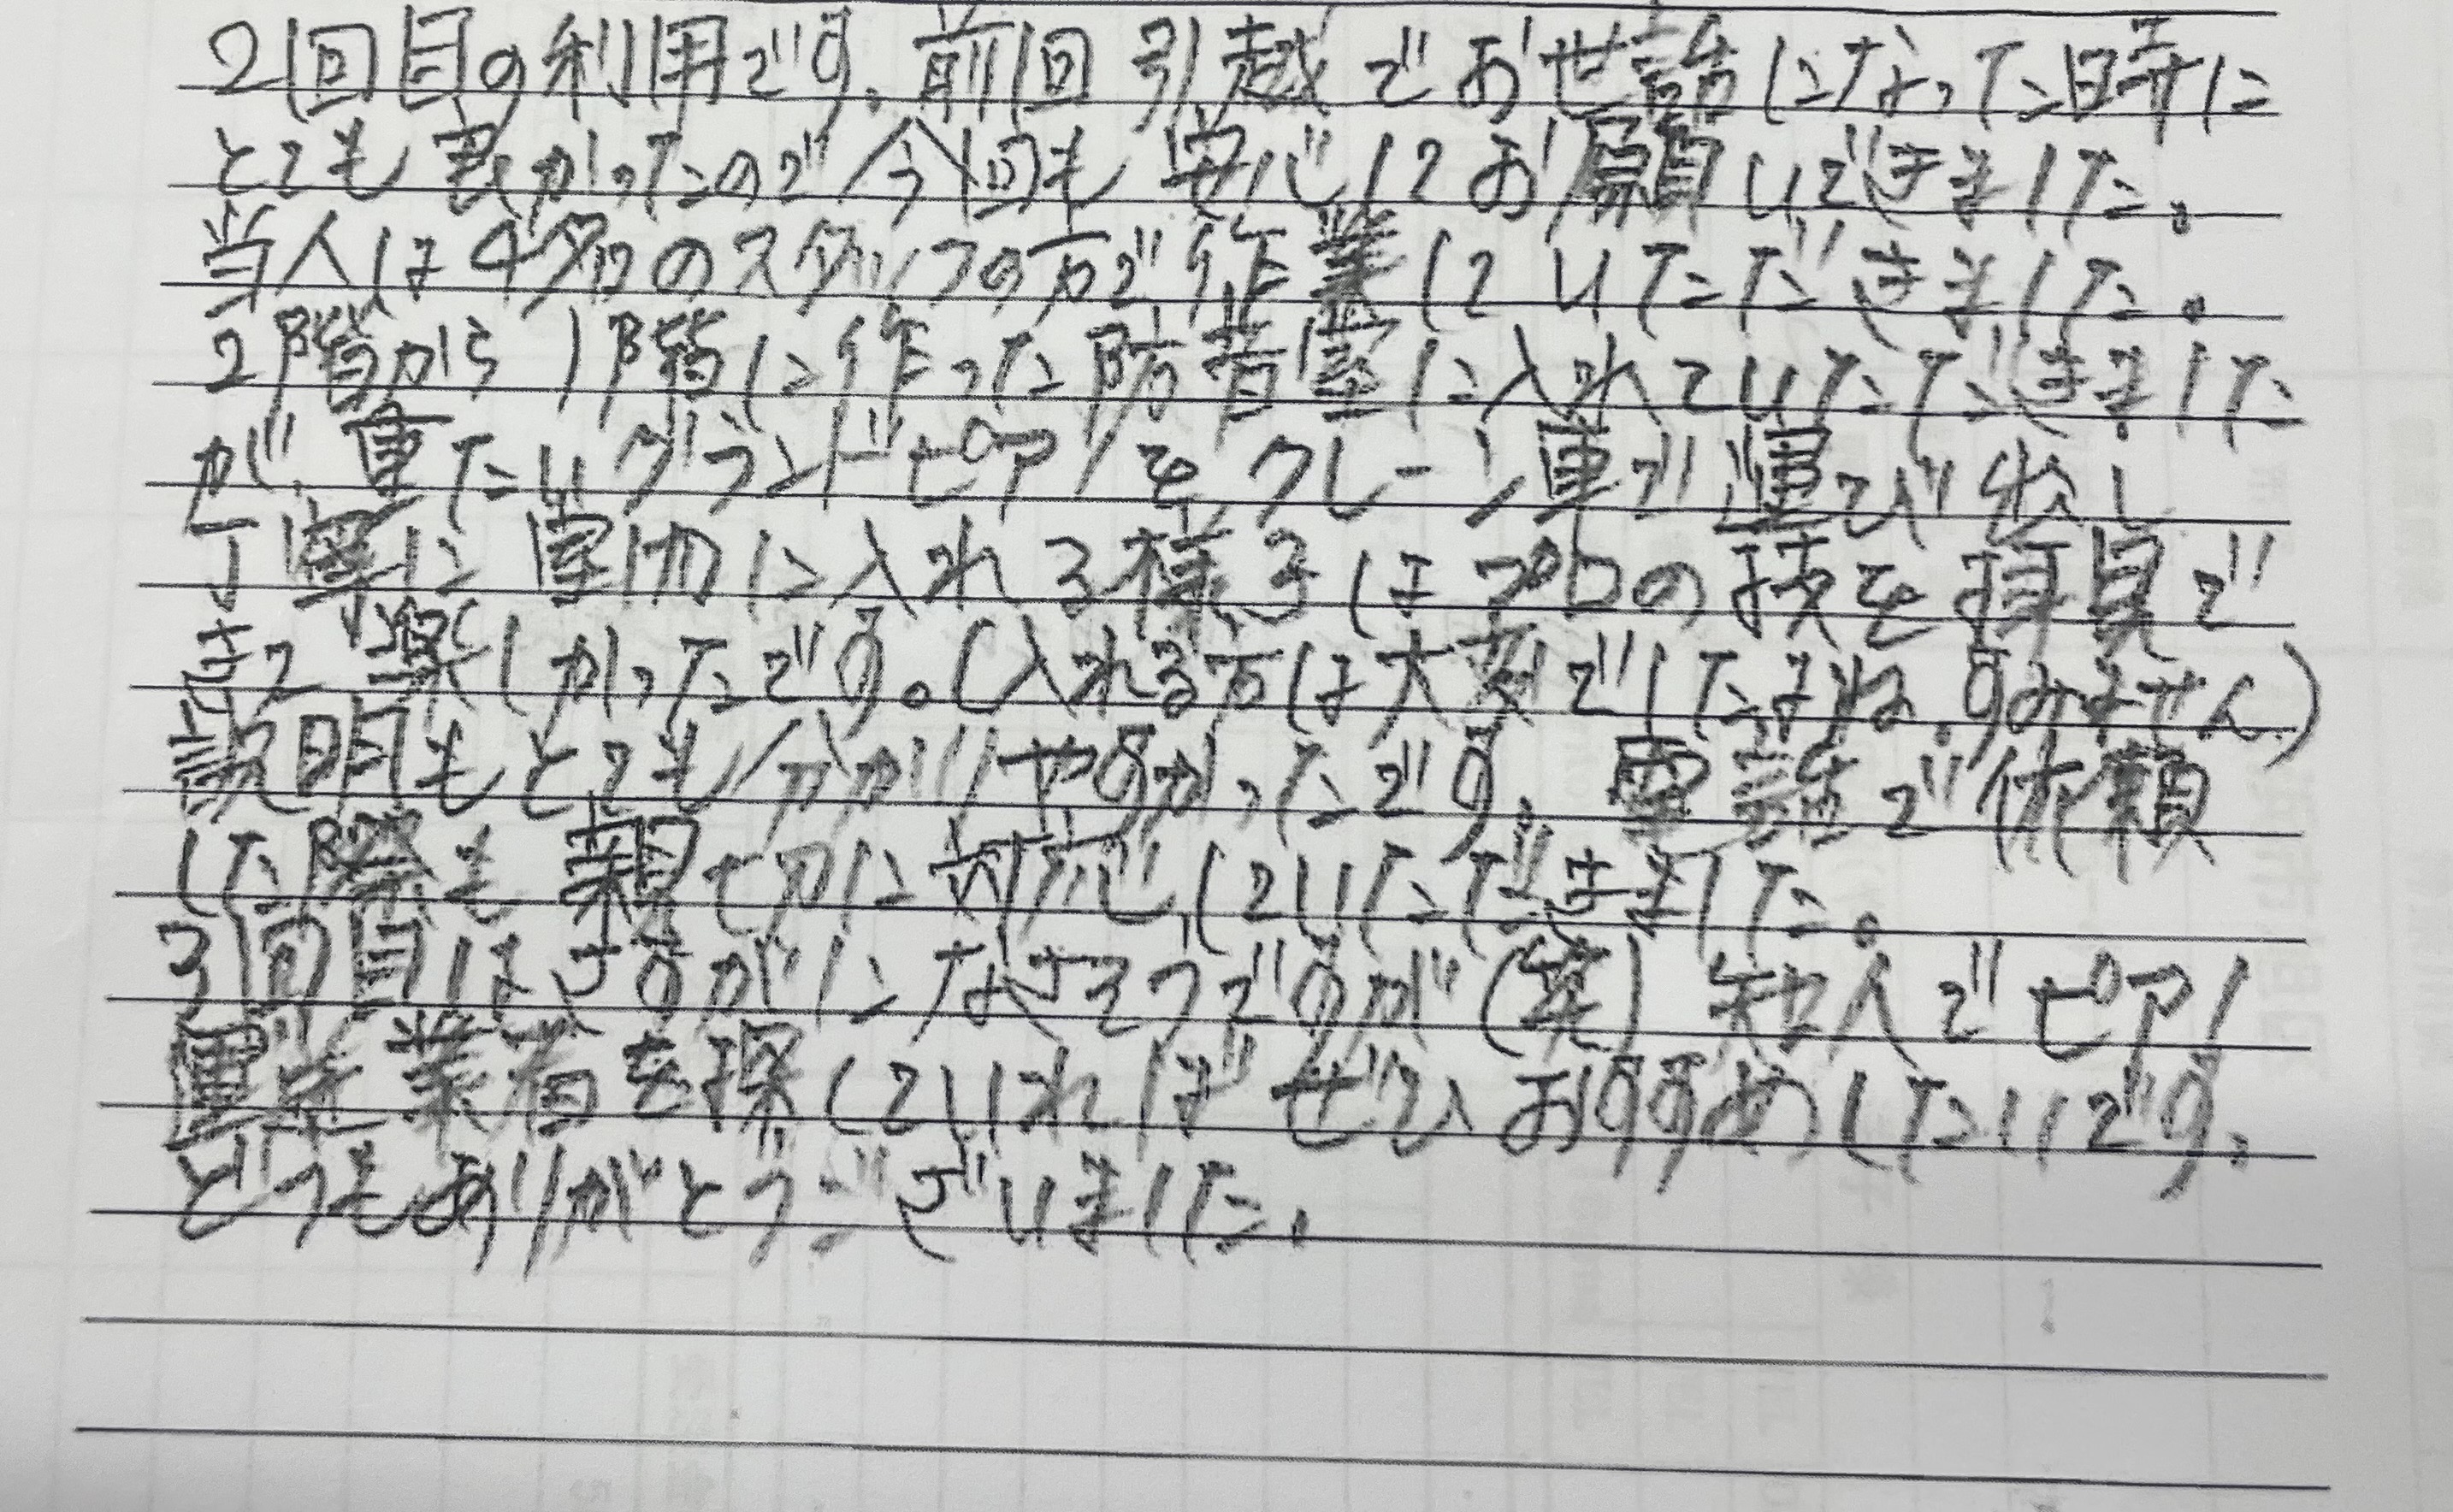 2回目の利用です。前回引越でお世話になった時に
とても良かったので今回も安心してお願いできました。
当人は4名のスタッフの方で作業していただきました。
2階から1階に作った防音室に入れていただきました
が、重たいグランドピアノをクレーン車で運び出し
丁寧に室内に入れる様子はプロの技を拝見で
きて楽しかったです。(入れる方は大変でしたよね。すみません)
説明もとても分かりやすかったです。電話で依頼
した際も親切に対応していただきました。
3回目はさすがになさそうですが(笑)知人でピアノ
運送業者を探していればぜひおすすめしたいです。
どうもありがとうございました。